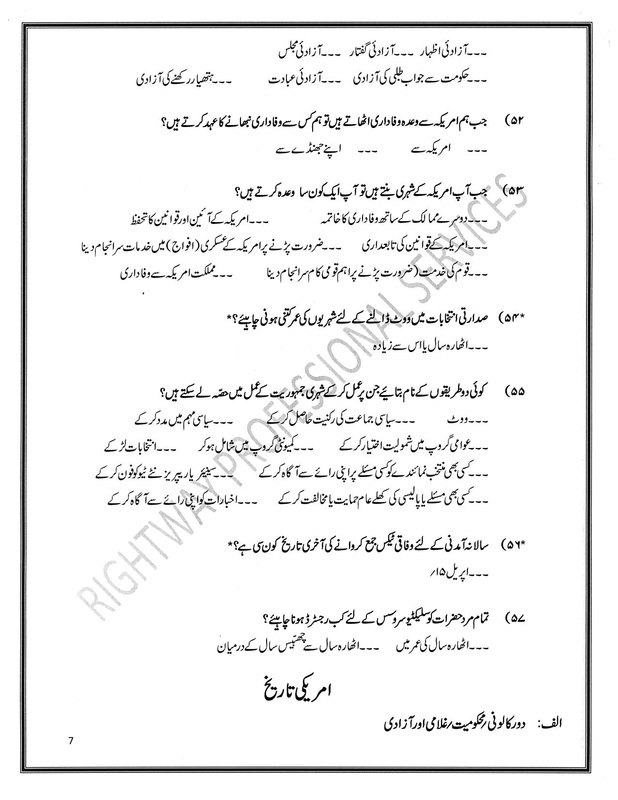 ۔۔۔آزادیٔ اظہار ۔۔۔آزادیٔ گفتار ۔۔۔آزادیٔ مجلس
۔۔۔حکومت سے جواب طلبی کی آزادی ۔۔۔آزادیٔ عبادت ۔۔۔ہتھیار رکھنے کی آزادی
۵۲) جب ہم امریکہ سے وعدہ وفاداری اٹھاتے ہیں تو ہم کس سے وفاداری نبھانے کا عہد کرتے ہیں؟
۔۔۔ امریکہ سے ۔۔۔ اپنے جھنڈے سے
۵۳) جب آپ امریکہ کے شہری بنتے ہیں تو آپ ایک کون سا وعدہ کرتے ہیں؟
۔۔۔دوسرے ممالک کے ساتھ وفاداری کا خاتمہ ۔۔۔امریکہ کے آئین اور قوانین کا تحفظ
۔۔۔امریکہ کے قوانین کی تابعداری ۔۔۔ضرورت پڑنے پر امریکہ کے عسکری (افواج) میں خدمات سرانجام دینا
۔۔۔قوم کی خدمت (ضرورت پڑنے پر اہم قومی کام سرانجام دینا ۔۔۔مملکت امریکہ سے وفاداری
*۵۴) صدارتی انتخابات میں ووٹ ڈالنے کے لئے شہریوں کی عمر کتنی ہونی چاہیئے؟*
۔۔۔اٹھارہ سال یا اس سے زیادہ
۵۵) کوئی دو طریقوں کے نام بتائیے جن پر عمل کر کے شہری جمہوریت کے عمل میں حصہ لے سکتے ہیں؟
۔۔۔ووٹ ۔۔۔سیاسی جماعت کی رکنیت حاصل کر کے ۔۔۔سیاسی مہم میں مدد کر کے
۔۔۔عوامی گروپ میں شمولیت اختیار کر کے ۔۔۔کمیونٹی گروپ میں شامل ہو کر ۔۔۔انتخابات لڑ کے
۔۔۔کسی بھی منتخب نمائندے کو کسی مسئلے پر اپنی رائے سے آگاہ کر کے ۔۔۔سینیٹر یا ریپریزنٹےٹیو کو فون کر کے
۔۔۔کسی بھی مسئلے یا پالیسی کی کھلے عام حمایت یا مخالفت کر کے ۔۔۔اخبارات کو اپنی رائے سے آگاہ کر کے
*۵۶) سالانہ آمدنی کے لئے وفاقی ٹیکس جمع کروانے کی آخری تاریخ کون سی ہے؟*
۔۔۔اپریل ۱۵؍
۵۷) تمام مرد حضرات کو سلیکٹیو سروسس کے لئے کب رجسٹرڈ ہونا چاہیئے؟
۔۔۔اٹھارہ سال کی عمر میں ۔۔۔اٹھارہ سال سے چھبیس سال کے درمیان
امریکی تاریخ
الف: دور کالونی؍محکومیت؍غلامی اور آزادی
7
RIGHTWAY PROFESSIONAL SERVICES